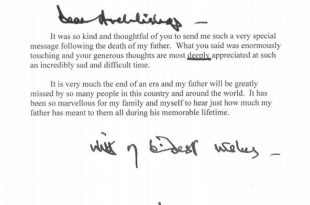 Dear Archbishop –
It was so kind and thoughtful of you to send me such a very special
message following the death of my father. What you said was enormously
touching and your generous thoughts are most deeply appreciated at such
an incredibly sad and difficult time.
It is very much the end of an era and my father will be greatly
missed by so many people in this country and around the world. It has
been so marvellous for my family and myself to hear just how much my
father has meant to them all during his memorable lifetime.
wishes –